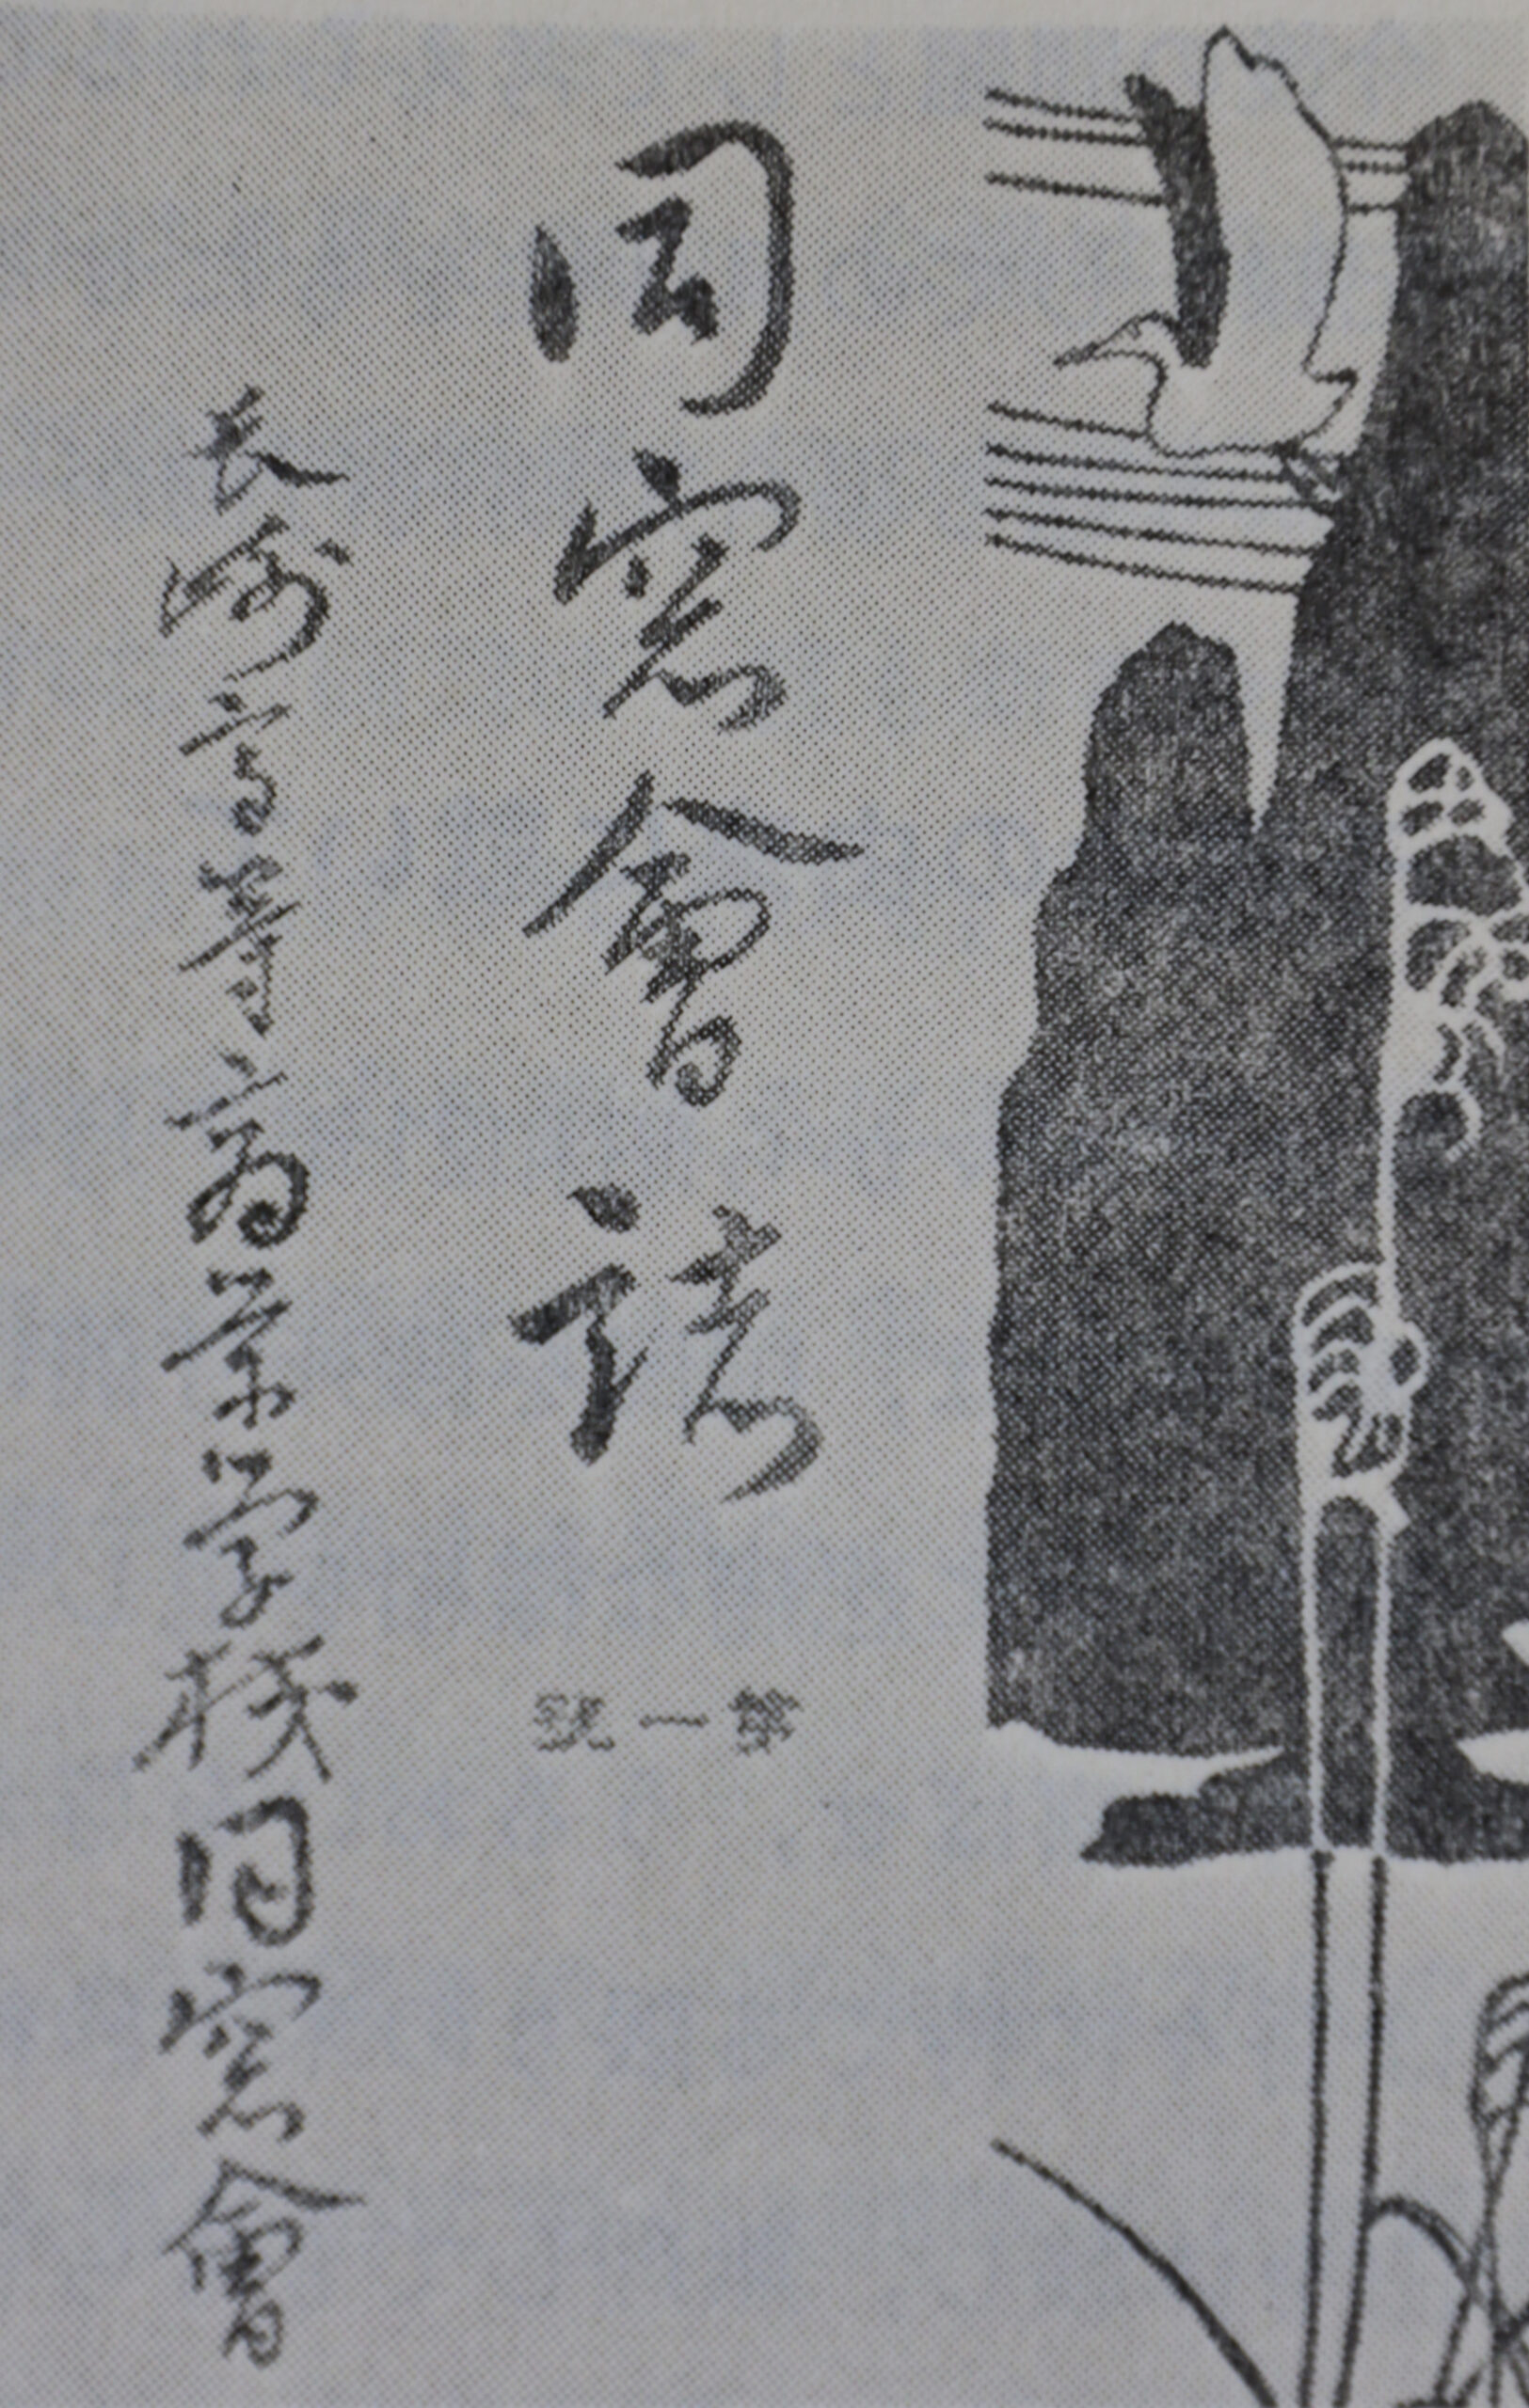 同窓會誌
第一號
長崎高等商業学校同窓會